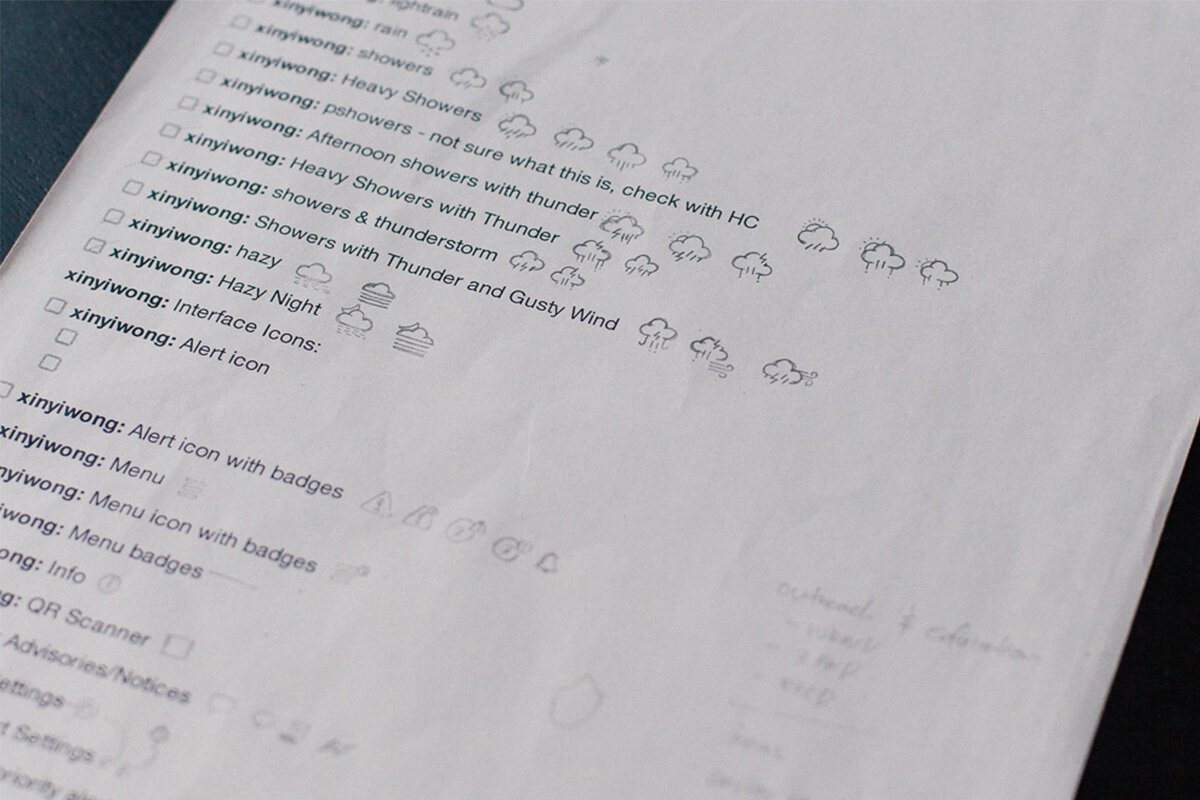 lightrain
xinyiwong: rain
xinyiwong: showers
xinyiwong: Heavy Showers
xinyiwong: pshowers - not sure what this is, check with HC
xinyiwong: Afternoon showers with thunder
xinyiwong: Heavy Showers with Thunder
xinyiwong: showers & thunderstorm
xinyiwong: Showers with Thunder and Gusty Wind
xinyiwong: hazy
xinyiwong: Hazy Night
xinyiwong: Interface Icons:
xinyiwong: Alert icon
xinyiwong: Alert icon with badges
xinyiwong: Menu
nyiwong: Menu icon with badges
iwong: Menu badges
ong: Info
g: QR Scanner
: Advisories/Notices
ettings
t Settings
outreach & education